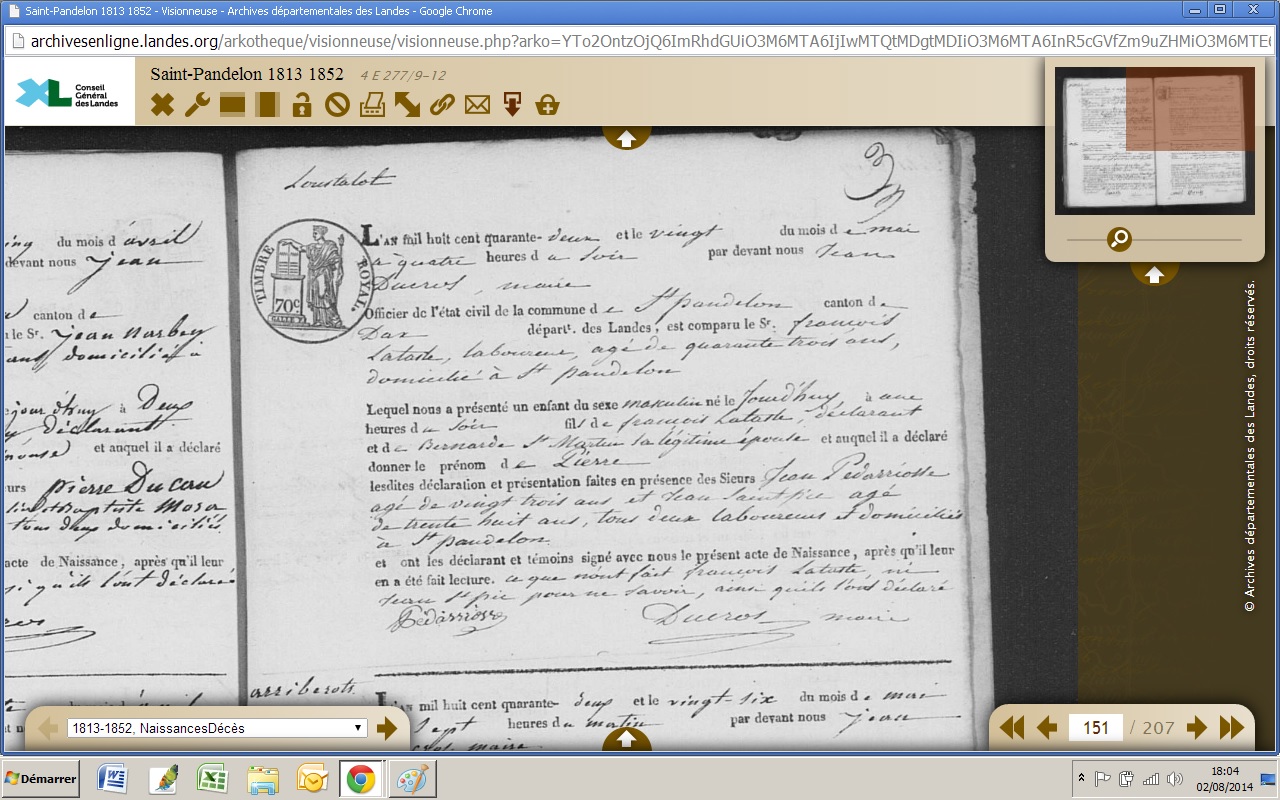 Saint-Pandelon 1813 1852 - Visionneuse - Archives départementales des Landes - Google Chrome
archivesenligne.landes.org/arkotheque/visionneuse/visionneuse.php?arko=YTo2OntzOjQ6ImRhdGUiO3M6MTA6IjIwMTQtMDgtMDIiO3M6MTA6InR5cGVfZm9uZHMiO3M6MTE6
Conseil
Général
des Landes
Saint-Pandelon 1813 1852 4 E 277/9-12
Loustalot
TIMBRE ROYAL.
70c
L'AN mil huit cent quarante-deux et le vingt du mois de mai
à quatre heures du soir par devant nous Jean
Ducros, maire
Officier de l'état civil de la commune de St pandelon canton de
Dax départt. des Landes, est comparu le Sr. françois
Lataste, laboureur, agé de quarante trois ans,
domicilié à St pandelon
Lequel nous a présenté un enfant du sexe masculin né le Jourd'huy, à une
heures du soir fils de françois Lataste, déclarant
et de Bernarde St Martin sa légitime épouse et auquel il a déclaré
donner le prénom de Pierre
lesdites déclaration et présentation faites en présence des Sieurs Jean Pédarriosse
agé de vingt trois ans et Jean Saint pic agé
de trente huit ans, tous deux laboureurs et domiciliés
à St pandelon
et ont les déclarant et témoins signé avec nous le présent acte de Naissance, après qu'il leur
en a été fait lecture. ce que n'ont fait françois Lataste ni
Jean St pic pour ne savoir, ainsi qu'ils l'ont déclaré
Pédarriosse Ducros maire
L'AN mil huit cent quarante-deux et le vingt-six du mois de mai
sept heures du matin par devant nous Jean
maire
du mois d'avril
devant nous Jean
canton de
le Sr. Jean
ans, domicilié à
à Deux
déclarant
et auquel il a déclaré
pierre Ducau
tous deux domiciliés
acte de Naissance, après qu'il leur
qu'ils l'ont déclaré
© Archives départementales des Landes, droits réservés.
1813-1852, NaissancesDécès
151 / 207
Démarrer
18:04
02/08/2014